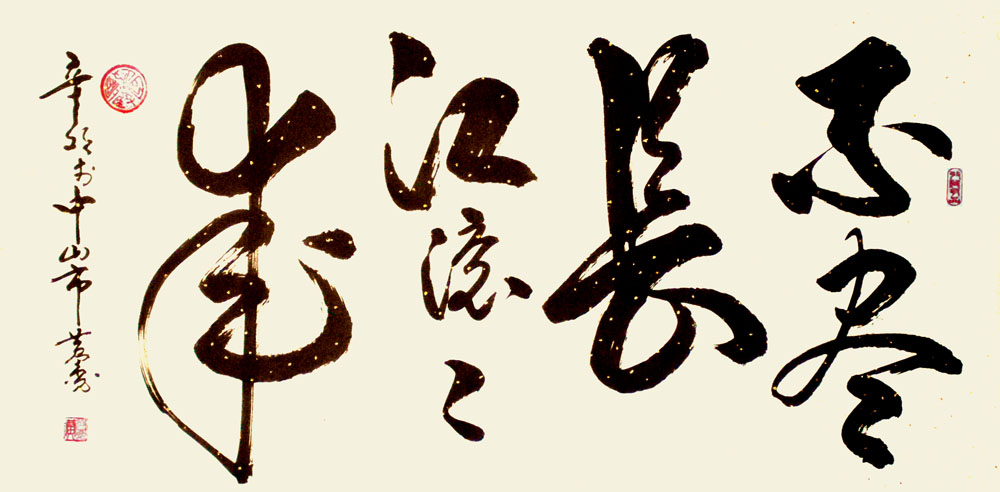 不尽
長
江滚〻
来
辛卯於中山市